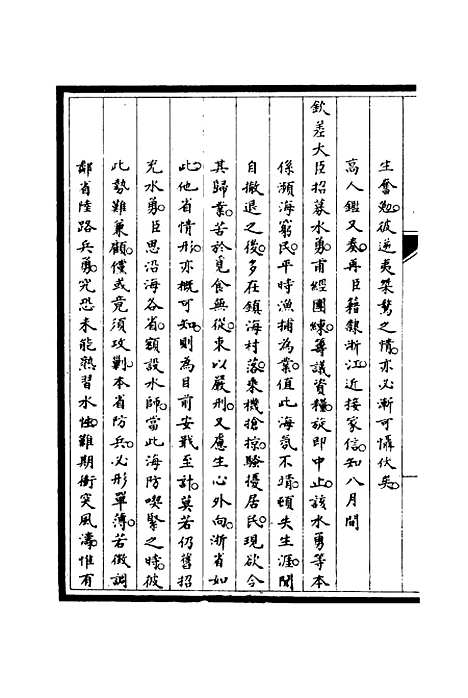 生奮勉。彼逆夷桀驁之情。亦必漸可懾伏矣。
高人鑑又奏。再臣籍隸浙江。近接家信。知八月間
欽差大臣招募水勇。甫經團練。籌議資糧。旋即中止。該水勇等本
係瀕海窮民。平時漁捕為業。值此海氛不靖。頓失生涯。聞
自撤退之後。多在鎮海村落。乘機搶掠。騷擾居民。現欲令
其歸業。苦於覓食無從。束以嚴刑。又慮生心外向。浙省如
此。他省情形。亦概可知。則為目前安戢至計。莫若仍舊招
充水勇。臣思沿海各省。額設水師。當此海防喫緊之時。彼
此勢難兼顧。儻或竟須攻剿。本省防兵。必形單薄。若徵調
鄰省陸路兵勇。究恐未能熟習水性。難期衝突風濤。惟有